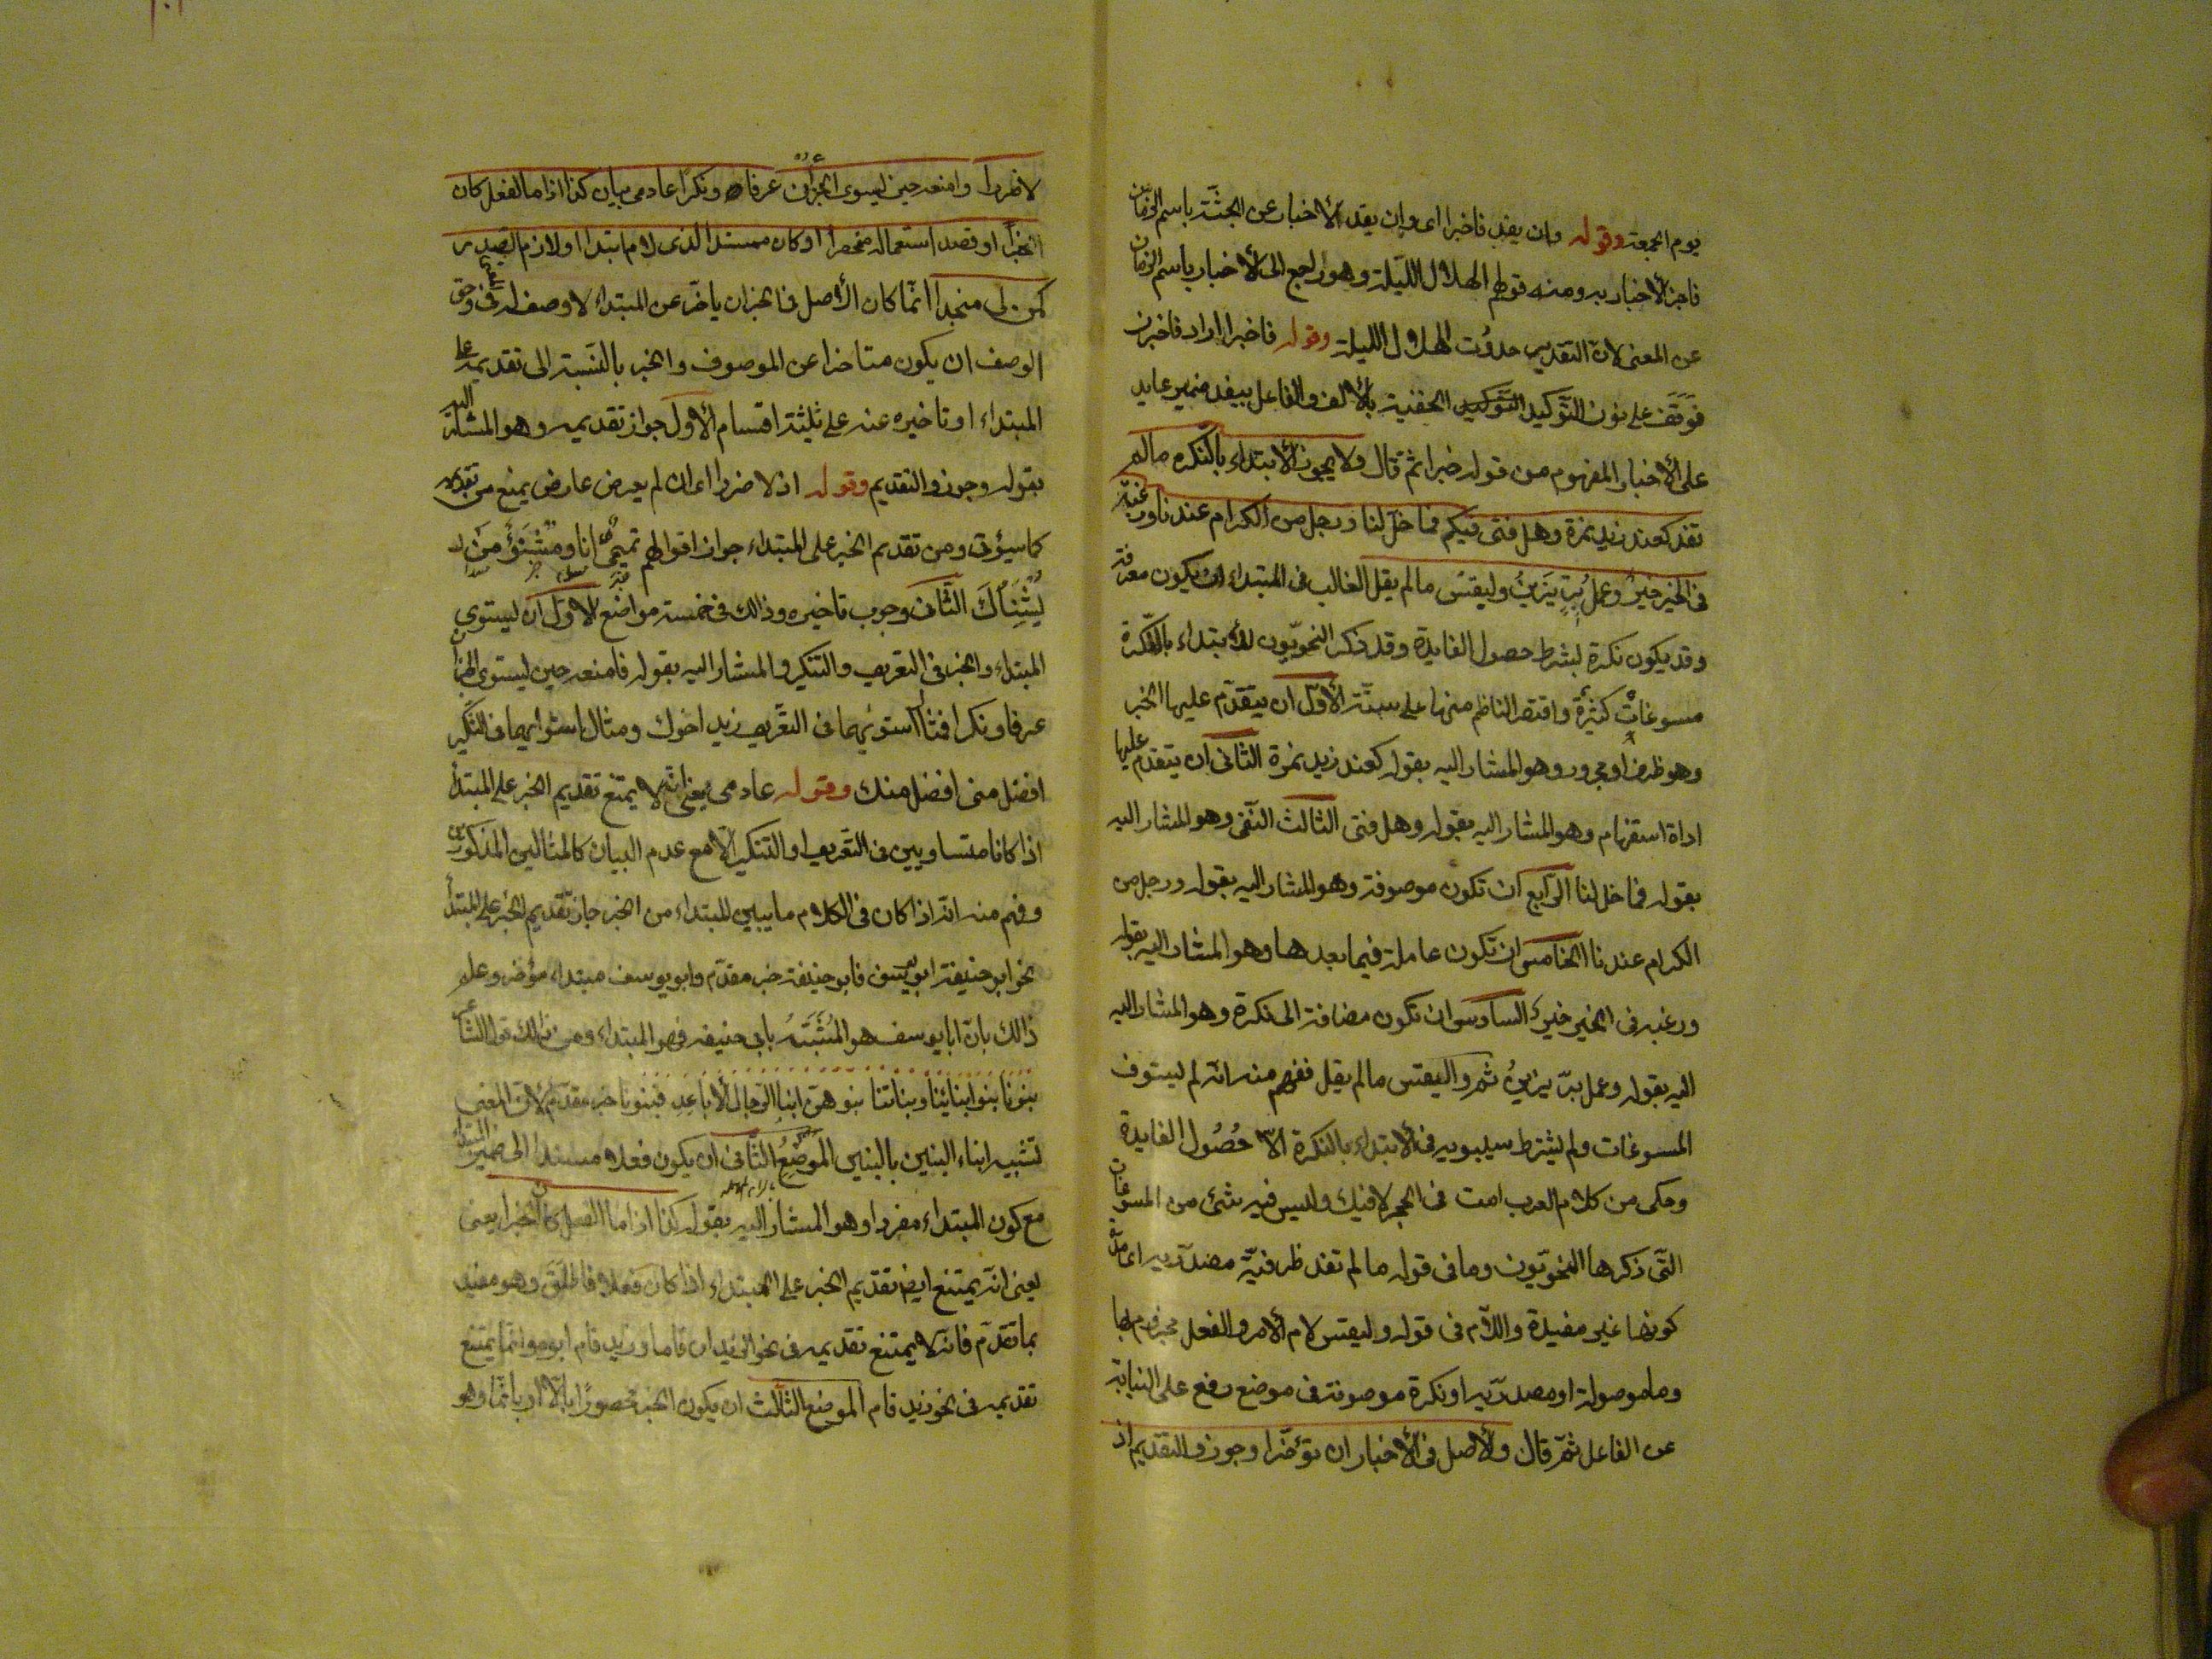 يوم الجمعة وقوله وان يفد فاخبرا اى وان يفد الاخبار عن الجثّة باسم الزمان
فاجز الاخبار به ومنه قولهم الهلال الليلة وهو راجع الى الاخبار باسم الزمان
عن المعنى لانّ التقدير حدوُث الهلال الليلة وقوله فاخبرا اراد فاخبرن
فَوَقَفَ على نون التَّوكيد الخفية بالألف والفاعل بيفد ضمير عايد
على الأخبار المفهوم من قوله خبرا ثمّ قال ولا يجوز الأبتداء بالنّكره مالم
تفد كعند زيد نمرة وهل فتى فيكم فما خلّ لنا ورجل من الكرام عندنا ورغبة
فى الخير خيرٌ وعمل بِرٍّ يَزينُ وليقسْ مالم يقل الغالب فى المبتداء ان يكون معرفة
وقد يكون نكرة بشرط حصول الفايدة وقد ذكر النحويّون للأبتداء بالنّكرة
مسوغاتٌ كثيرةٌ واقتصر الناظم منها على ستّة الأوّل ان يتقدّم عليها الخبر
وهو ظرف او مجرور وهو المشار اليه بقوله كعند زيد نمرة الثانى ان يتقدم عليها
اداة استفهام وهو المشار اليه بقوله وهل فتى الثالث النّفى وهو المشار اليه
بقوله فما خل لنا الرّابع ان تكون موصوفة وهو المشار اليه بقوله ورجل من
الكرام عندنا الخامس ان تكون عاملة فيما بعدها وهو المشار اليه بقوله
ورغبه فى الخير خيرٌ السادس ان تكون مضافة الى نكرة وهو المشار اليه
اليه بقوله وعمل برّ يزينُ ثمّ واليقس مالم يقل ففهم منه انّه لم يستوف
المسوغات ولم يشترط سيبويه فى الابتداء بالنكرة الّا حُصُول الفايدة
وحكى من كلام العرب امت فى الحجر لا فيك وليس فيه شئ من المسوغات
التّى ذكرها النحوّيون وما فى قوله ما لم تفد ظرفيّة مصدّريه اى مدّة
كونها غير مفيدة واللّام فى قوله وليقس لام الأمر والفعل مجزوم بها
وما موصولة او مصدريّه او نكرة موصوفة فى موضع رفع على النيابة
عن الفاعل ثمّ قال والأصل فى الأخبار ان تؤخّرا وجوزو التقديم اذ
لا ضررا وامنعه حين يستوى الجزأن عرفا ونكرا عادمى بيان كذا اذا ما الفعل كان
الخبرا او قصد استعماله منحصرا او كان مسندا لذى لام ابتدا او لازم الصدر
كمن لى منجدا انّما كان الأصل فى الخبر ان ياخّر عن المبتداء لا وصف له وحق
الوصف ان يكون متاخرا عن الموصوف والخبر بالنّسبة الى تقديمه على
المبتداء او تاخيره عنه على ثلثة اقسام الأول جواز تقديمه وهو المشار اليه
بقوله وجوزو التقديم وقوله اذ لا ضررا اى ان لم يعرض عارض يمنع من تقديمه
كما سيؤتى ومن تقديم الخبر على المبتداء جواز اقوالهم تميمىٌّ انا ومشنؤٌ مَن
يَشْنِأكَ الثّانى وجوب تاخيره وذالك فى خمسة مواضع الاول ان يستوى
المبتداء والخبر فى التعريف والتنكير والمشار اليه بقوله فامنعه حين يستوى الجزأن
عرفا ونكرا فمثال استوئهما فى التعّريف زيد اخوك ومثال استوائهما فى التنكير
افضل منى افضل منك وقوله عادمى يعنى انّه لا يمتنع تقديم الخبر على المبتدأ
اذا كانا متساويين فى التعّريف او التنكير الّا مع عدم البيان كالمثالين المذكورين
وفهم منه انّه اذا كان فى الكلام ما يبين المبتداء من الخبر جاز تقديم الخبر على المبتدأ
نحو ابو حنيفة ابو يوسف فابو حنيفة خبر مقدّم وابو يوسف مبتداء مؤخر وعلم
ذالك بانّ ابا يوسف هو المُشَبَّهُ بابى حنيفه فهو المبتداء ومن ذالك قول الشاعر
بنونا بنو ابنائنا وبناتنا بنو هنّ ابنا الرّجال الأباعِدِ فبنونا خبر مقدّم لانّ المعنى
تشبيه ابناء البنين بالبنين الموضعُ الثّانى ان يكون فعلا مسندا الى ضمير المبتداء
مع كون المبتداء مفردا وهو المشار اليه بقوله كذا اذا ما الفعل كان الخبرا يعنى
يعنى انّه يمتنع ايضا تقدّيم الخبر على المبتداء اذا كان فعلا فاطلَقَ وهو مقيد
بما تقدّم فانّه لا يمتنع تقديمه فى نحو الزيدان قاما وزيد قام ابوه وانّما يمتنع
تقديمه فى نحو زيد قام الموضع الثالث ان يكون الخبر محصورًا بالّا او بانّما وهو